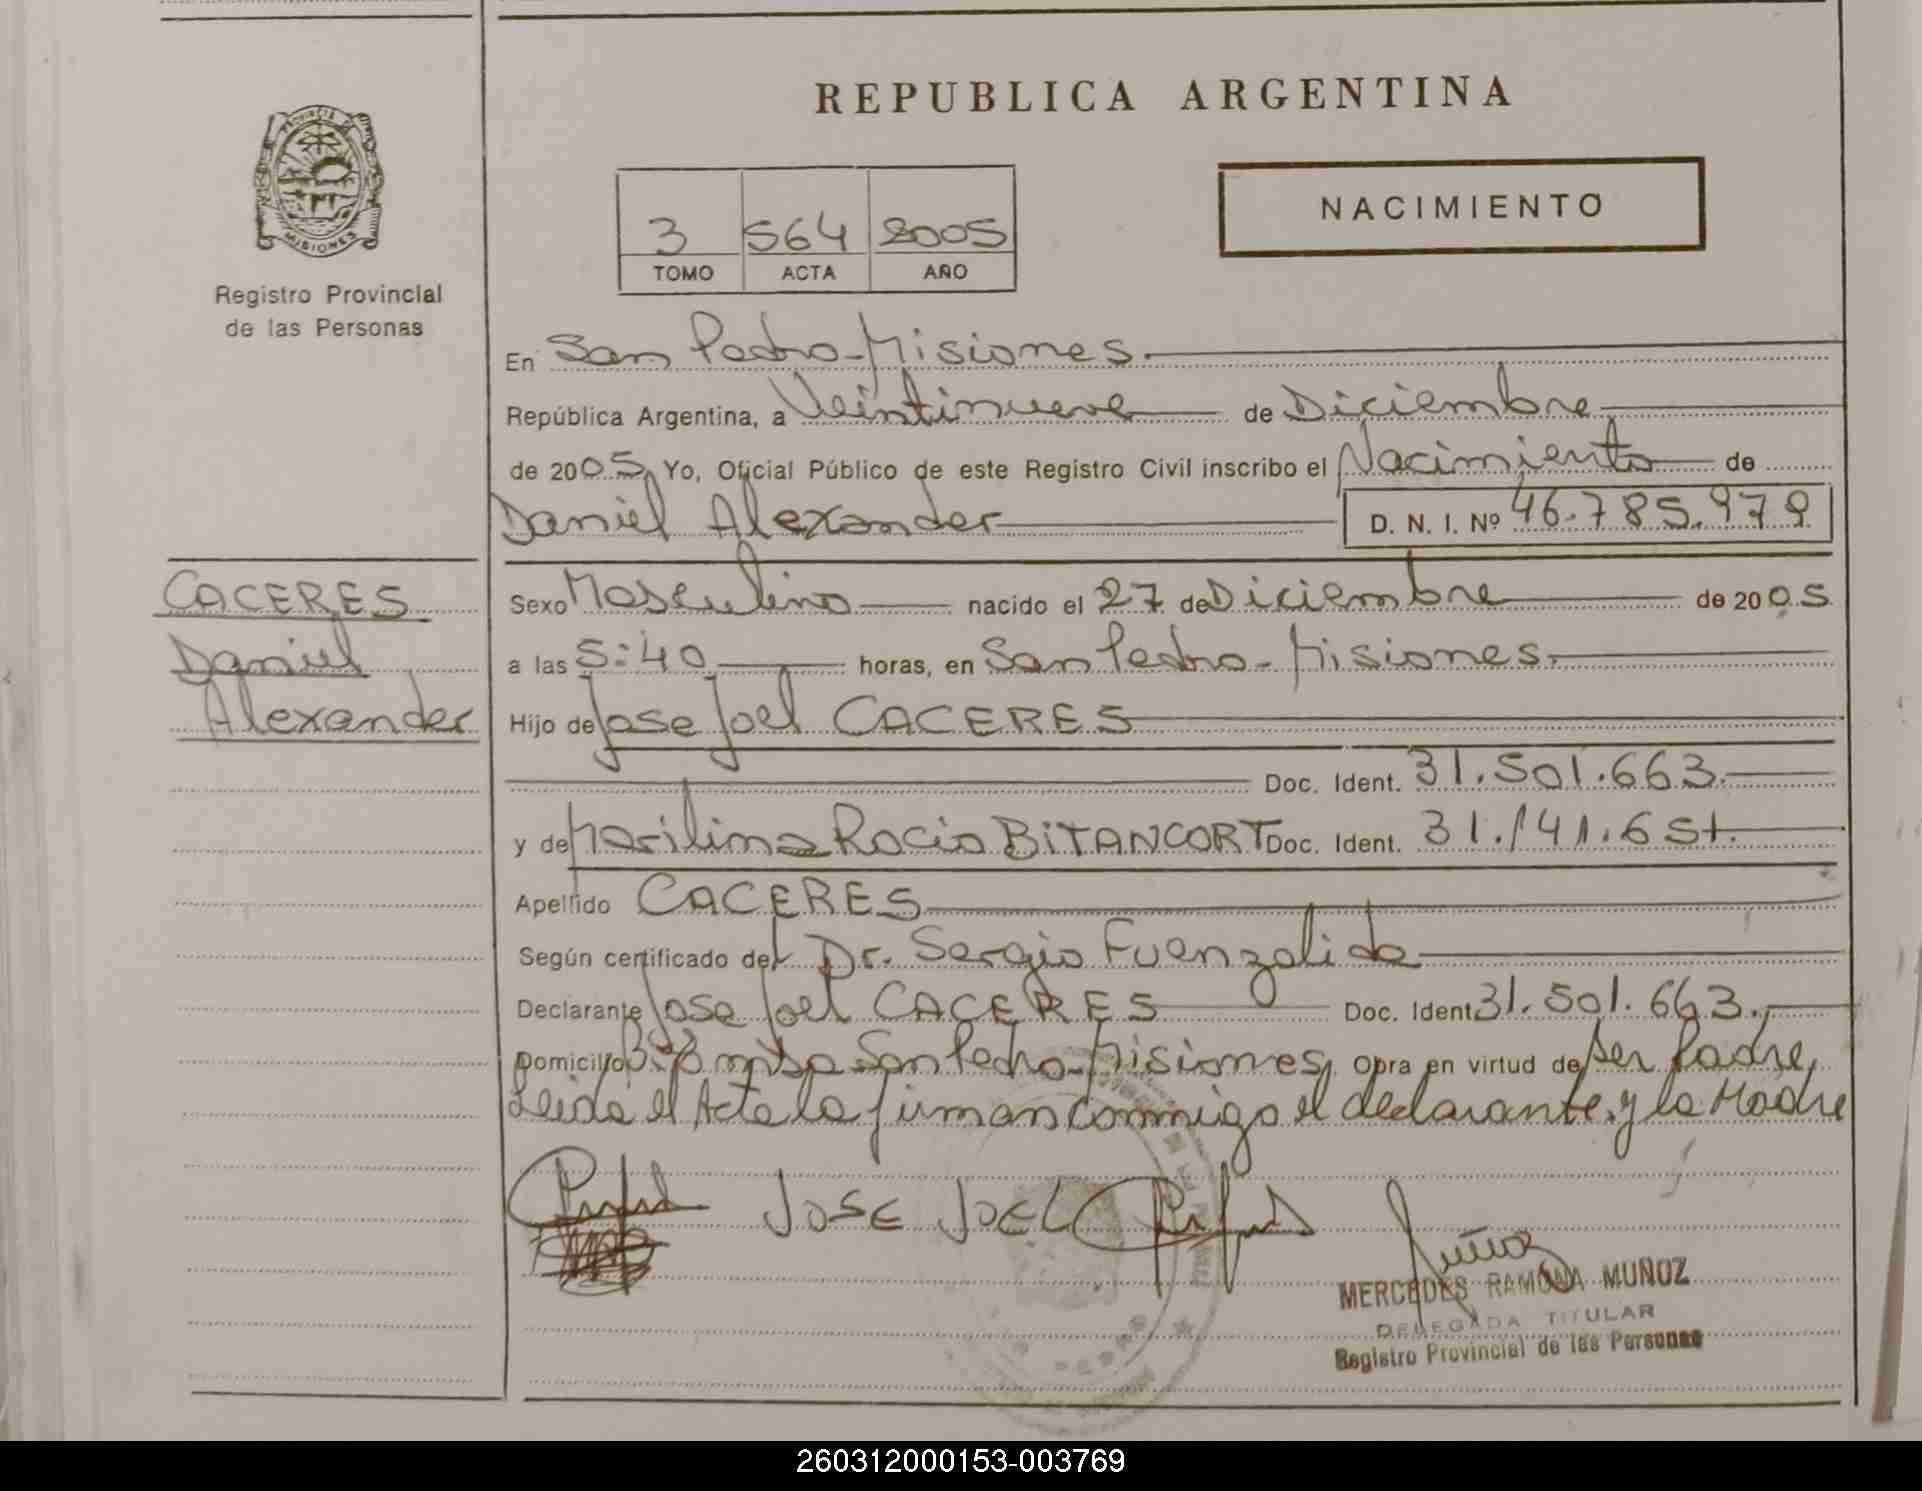 PROVINCIA DE
MISIONES
Registro Provincial
de las Personas
REPUBLICA ARGENTINA
3 564 2005
TOMO ACTA AÑO
NACIMIENTO
En San Pedro - Misiones.
República Argentina, a Veintinueve de Diciembre
de 2005, Yo, Oficial Público de este Registro Civil inscribo el Nacimiento de
Daniel Alexander D. N. I. Nº 46.785.979
CACERES
Daniel
Alexander
Sexo Masculino nacido el 27 de Diciembre de 2005
a las 5:40 horas, en San Pedro - Misiones.
Hijo de Jose Joel CACERES
Doc. Ident. 31.501.663.
y de Marilina Rocio BiTANCORT Doc. Ident. 31.141.651.
Apellido CACERES
Según certificado del Dr. Sergio Fuenzalida
Declarante Jose Joel CACERES Doc. Ident. 31.501.663.
Domicilio San Pedro - Misiones, Obra en virtud de ser Padre,
Leida el Acta la firman conmigo el declarante, y la Madre
JOSE JOEL
Muñoz
MERCEDES RAMONA MUÑOZ
DELEGADA TITULAR
Registro Provincial de las Personas
260312000153-003769